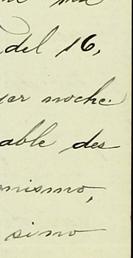 del 16,
noche.
able des
nismo,
simo